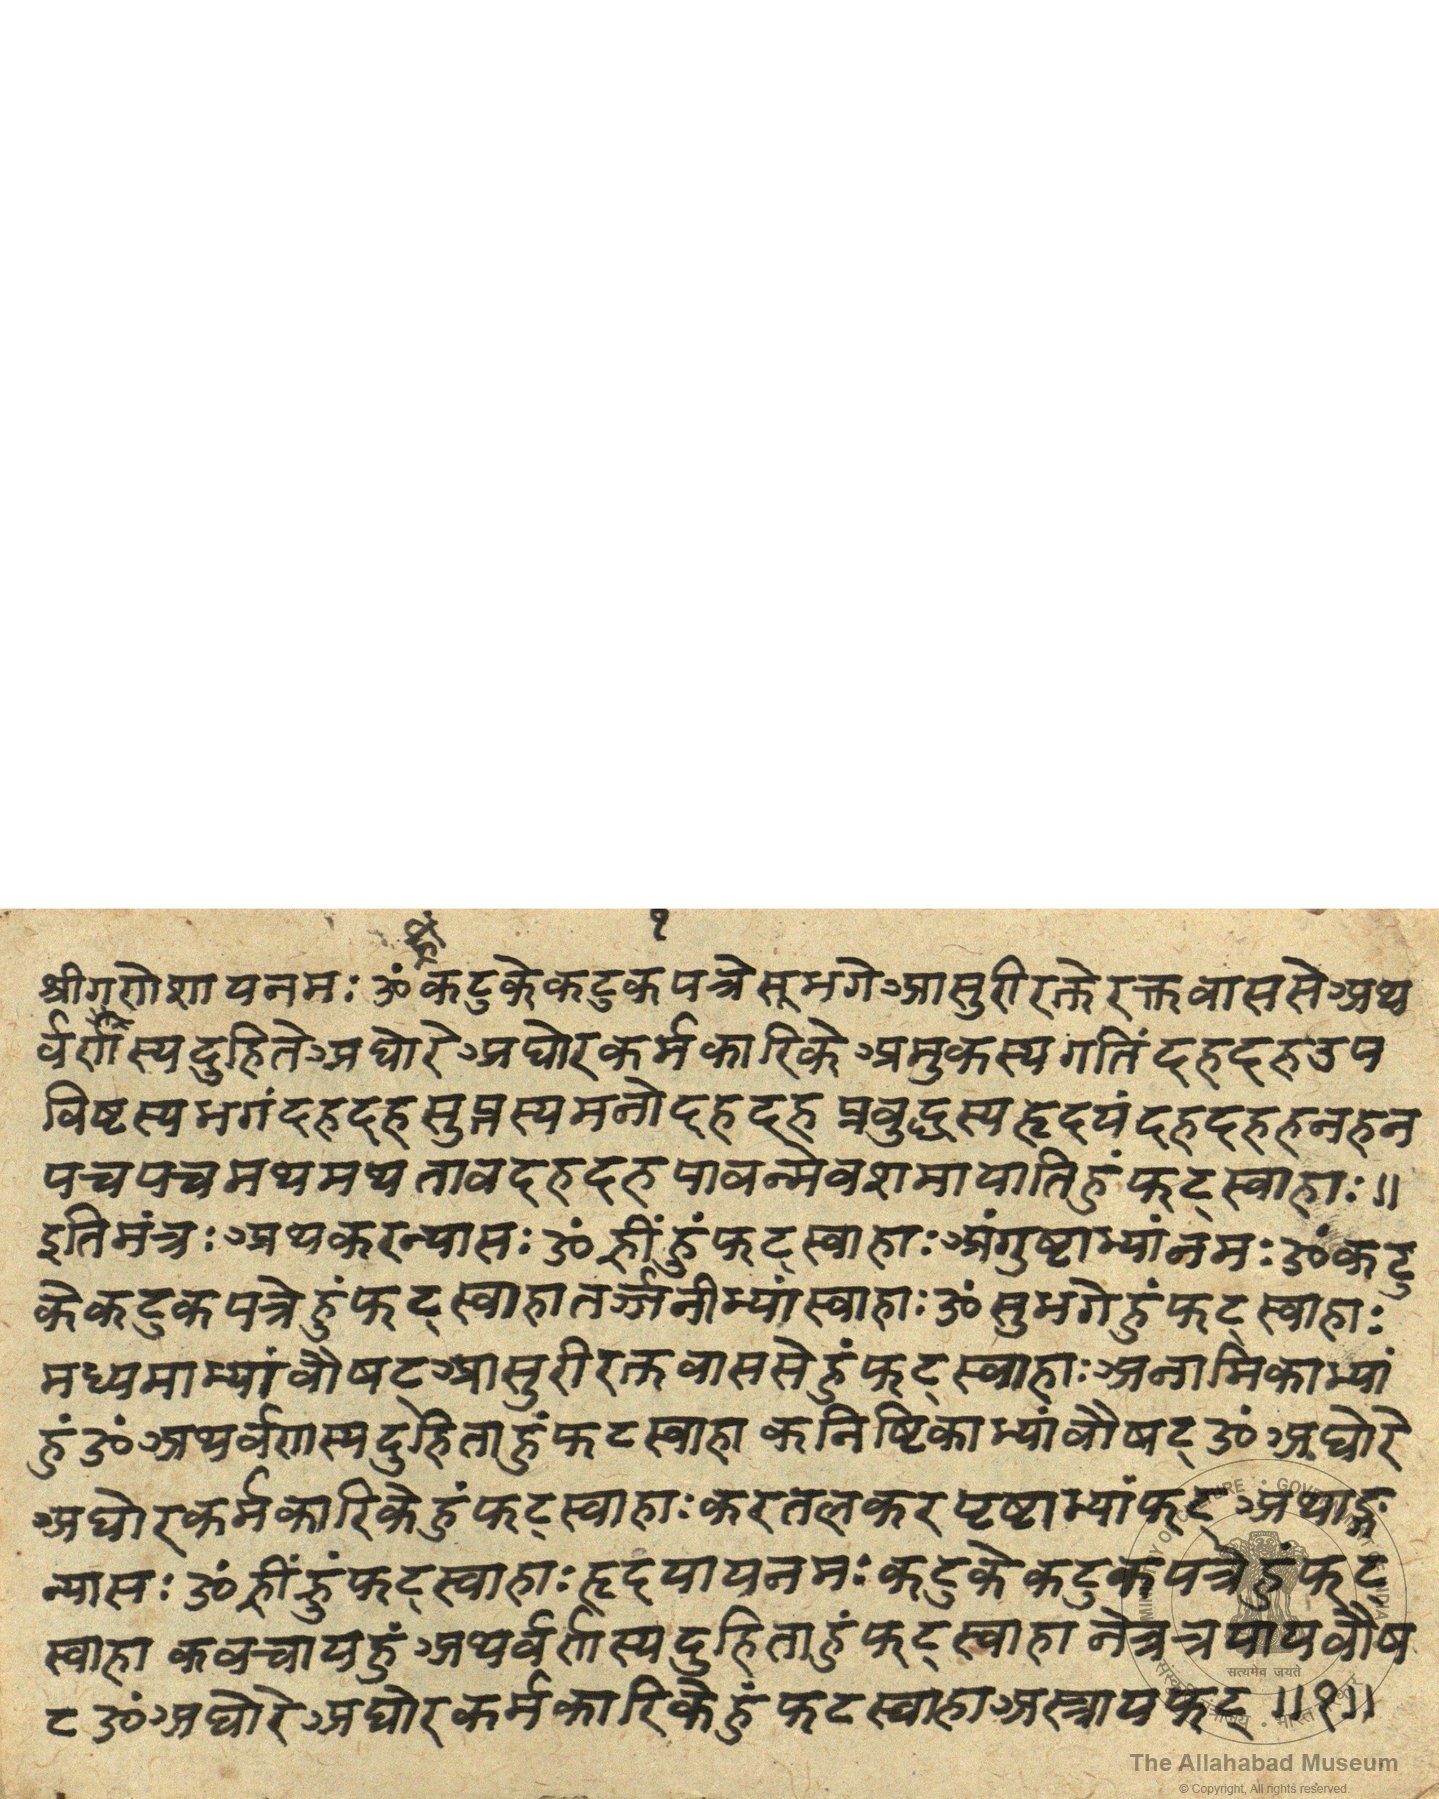 १
श्रीगणेशायनमः ॐ कटुकेकटुकपत्रेसूभगेआसुरीरक्तेरक्तवाससेअथ
र्वणस्यदुहितेअघोरेअघोरकर्मकारिकेअमुकस्यगतिंदहदहउप
विष्टस्यभगंदहदहसुप्तस्यमनोदहदह प्रबुद्धस्यहृदयंदहदहहनहन
पचपचमथमथतावदहदहपावन्मेवशमायातिहुंफट्स्वाहाः॥
इतिमंत्रः अथकरन्यासः ॐ ह्रीं हुं फट्स्वाहाः अंगुष्टाभ्यांनमः ॐ कटु
केकटुकपत्रेहुंफट्स्वाहातर्ज्जनीभ्यांस्वाहाः ॐ सुभगेहुंफट्स्वाहाः
मध्यमाभ्यांवौषट्आसुरीरक्तवाससेहुंफट्स्वाहाः अनामिकाभ्यां
हुंॐअथर्वणस्यदुहिताहुंफटस्वाहा कनिष्टिकाभ्यांवौषट्ॐअघोरे
अघोरकर्मकारिकेहुंफट्स्वाहाः करतलकरपृष्टाभ्यांफट् अथाङ्ग
न्यासः ॐ ह्रीं हुं फट्स्वाहाः हृदयायनमः कटुकेकटुकपत्रेहुंफट
स्वाहा कवचायहुं अथर्वणस्यदुहिताहुंफट्स्वाहा नेत्रत्रयायवौष
टॐअघोरेअघोरकर्मकारिकेहुंफटस्वाहाअस्त्रायफट् ॥१॥
MINISTRY OF CULTURE • GOVERNMENT OF INDIA
सत्यमेव जयते
The Allahabad Museum
© Copyright, All rights reserved.